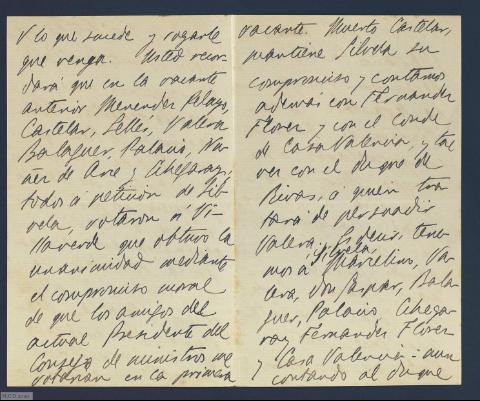 V lo que sucede y rogarle
que venga. Usted recor-
dará que en la vacante
anterior Menendez Pelayo,
Castelar, Sellés, Valera
Balaguer, Palacio, Nu-
ñez de Arce y Echegaray,
todos á petición de Sil-
vela, votaron á Vi-
llaverde que obtuvo la
unanimidad mediante
el compromiso moral
de que los amigos del
actual Presidente del
Consejo de ministros me
votarian en la primera
vacante. Muerto Castelar,
mantiene Silvela su
compromiso y contamos
además con Fernandez
Florez y con el conde
de Casa Valencia, y tal
vez con el duque de
Rivas, á quien tra
tará de persuadir
Valera. Es decir, tene-
Silvela,
mos á Marcelino, Va-
lera, Don Gaspar, Bala-
guer, Palacio Echega-
ray, Fernandez Florez
y Casa Valencia = aun
contando al duque